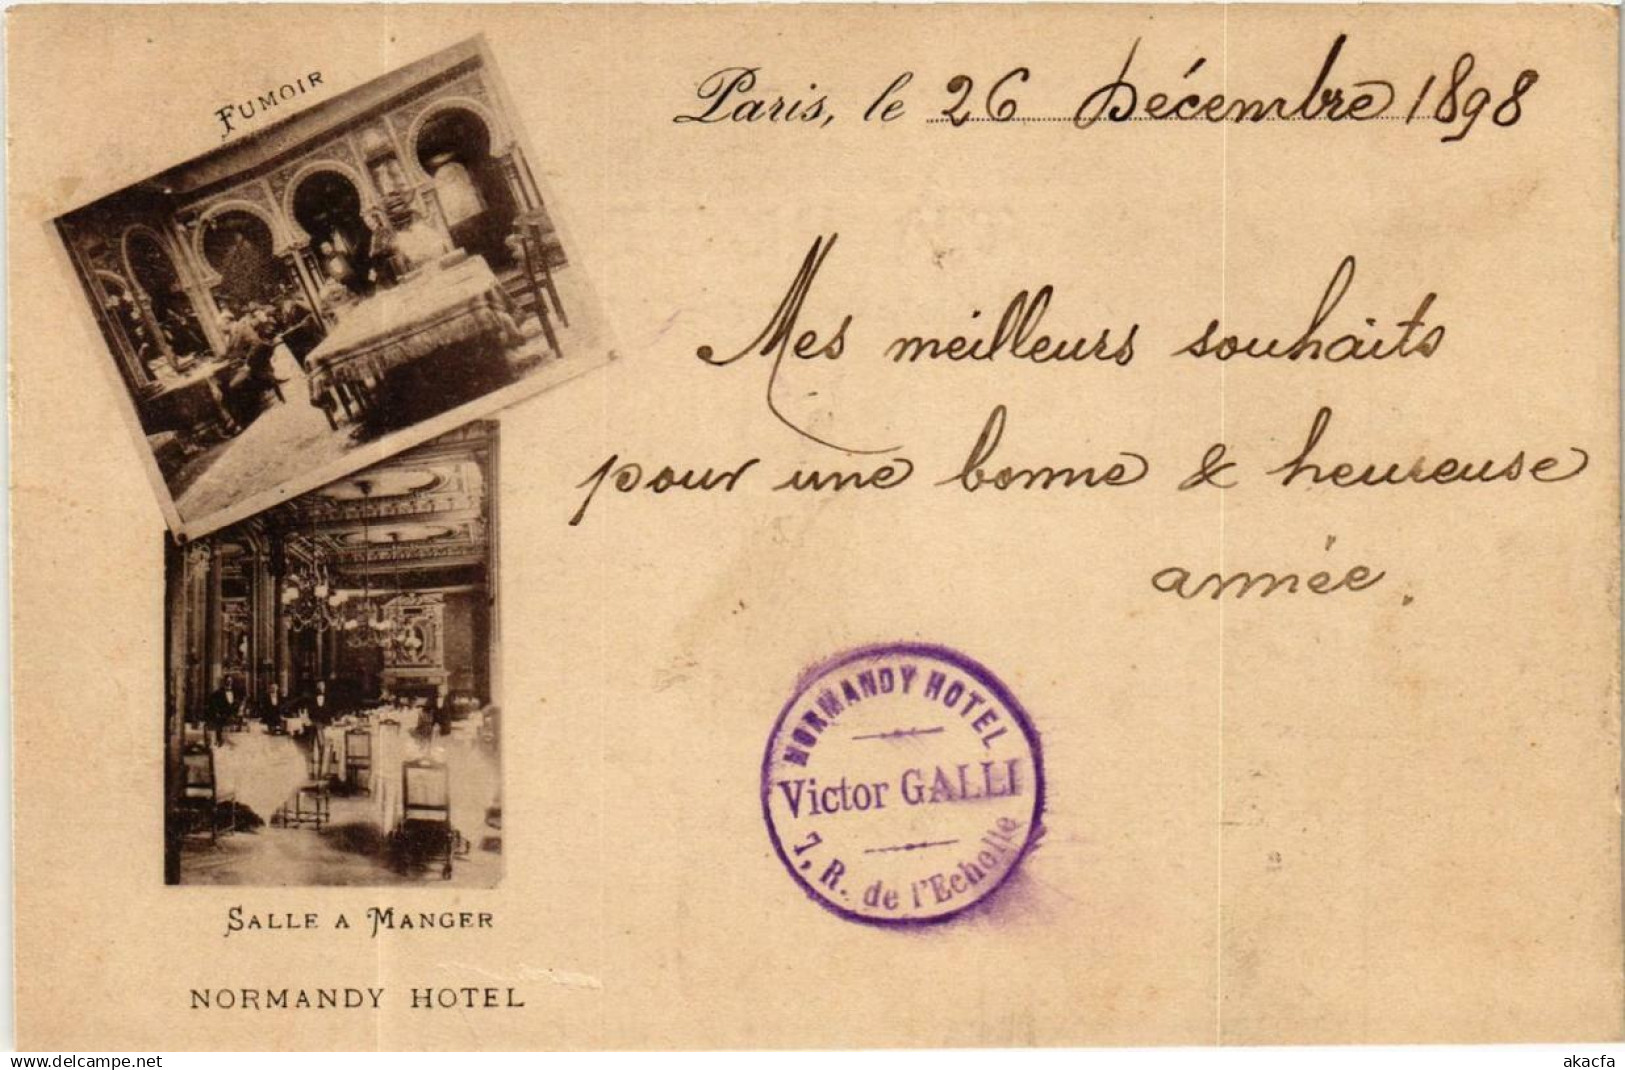 FUMOIR
Paris, le 26 Décembre 1898
Mes meilleurs souhaits
pour une bonne & heureuse
année.
NORMANDY HOTEL
Victor GALLI
7, R. de l'Echelle
SALLE A MANGER
NORMANDY HOTEL
delcampe.net
akacfa